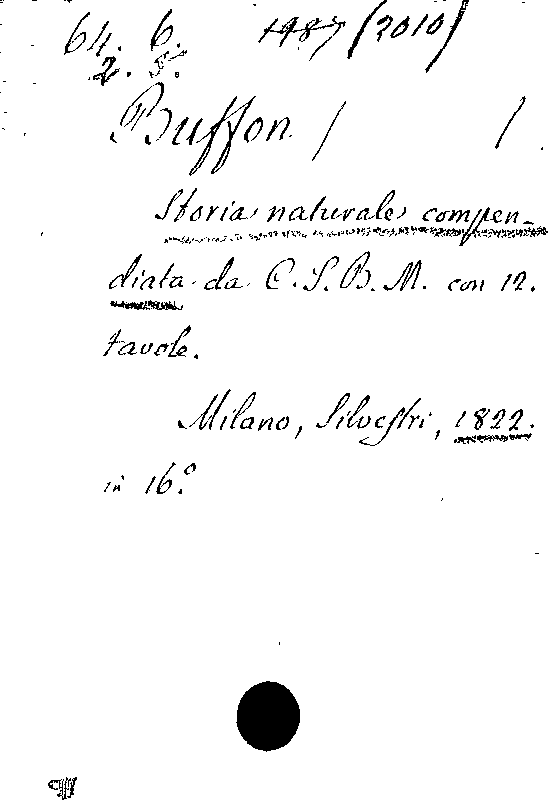 64. 6. 1987 (2010)
2. 5.
Buffon / /
Storia naturale compen-
diata da C. S. B. M. con 12.
tavole.
Milano, Silvestri, 1822.
in 16.º
¶